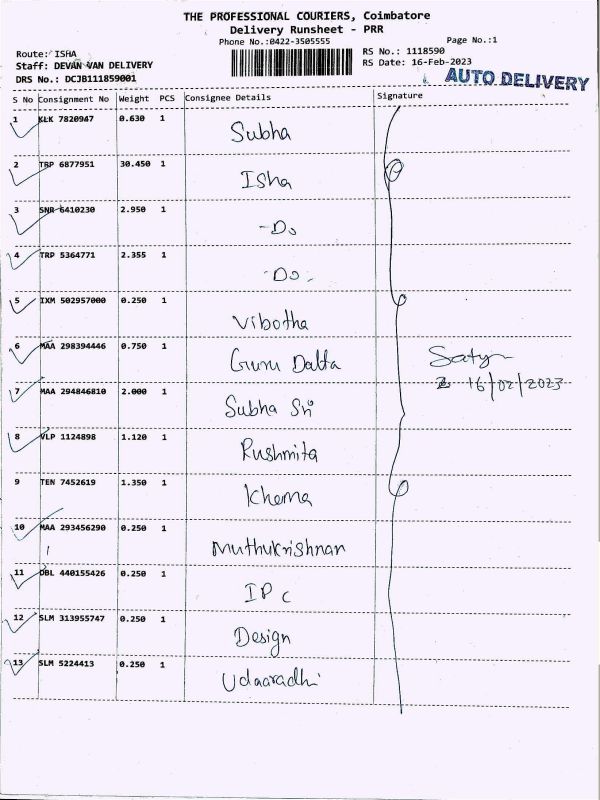 THE PROFESSIONAL COURIERS, Coimbatore
Delivery Runsheet - PRR
Phone No.:0422-3505555
Page No.:1
Route: ISHA
RS No.: 1118590
Staff: DEVAN VAN DELIVERY
RS Date: 16-Feb-2023
DRS No.: DCJB111859001
AUTO DELIVERY
S No Consignment No Weight PCS Consignee Details Signature
1 KLK 7820947 0.630 1 Subha
2 TRP 6877951 30.450 1 Isha
3 SNR 6410230 2.950 1 -Do
4 TRP 5364771 2.355 1 -Do-
5 IXM 502957000 0.250 1 Vibotha
6 MAA 298394446 0.750 1 Guru Datta
Saty
16/02/2023
7 MAA 294846810 2.000 1 Subha Sri
8 VLP 1124898 1.120 1 Rushmita
9 TEN 7452619 1.350 1 Khema
10 MAA 293456290 0.250 1 Muthukrishnan
11 DBL 440155426 0.250 1 IPC
12 SLM 313955747 0.250 1 Design
13 SLM 5224413 0.250 1 Udaaradhi